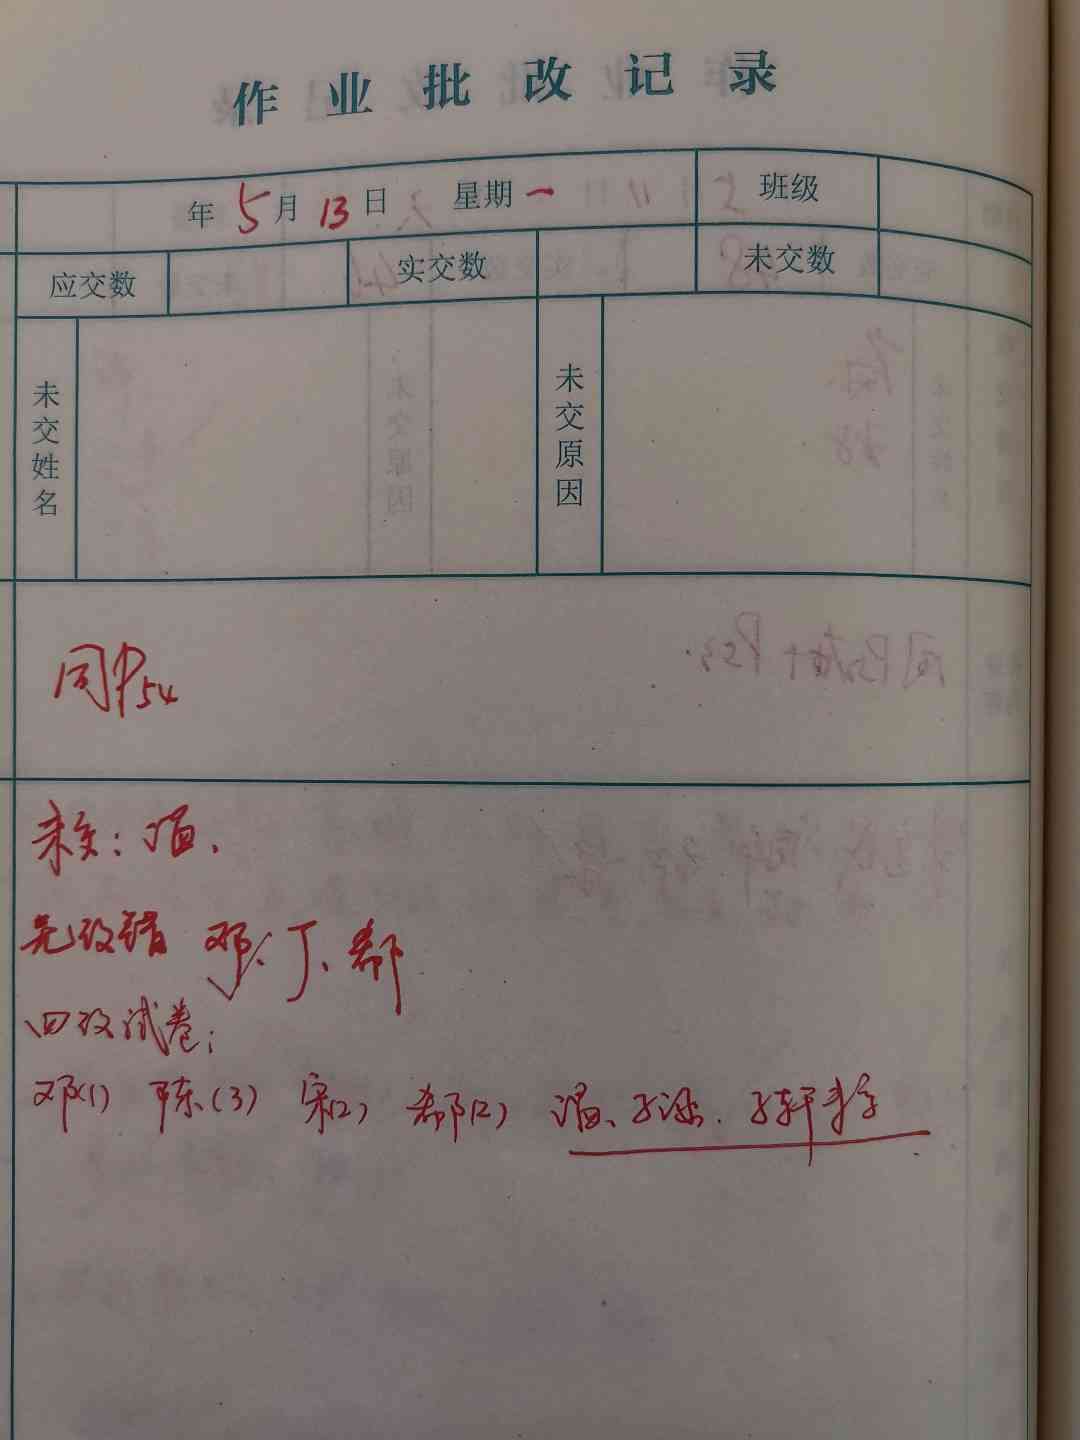 作业批改记录
年 5月 13日 星期一 班级
应交数 实交数 未交数
未交姓名 未交原因
同P54
未交：涵、
先改错 邓、丁、郗
四改试卷：
邓(1) 陈(3) 宋(2) 郗(2) 涵、子涵、子轩未交